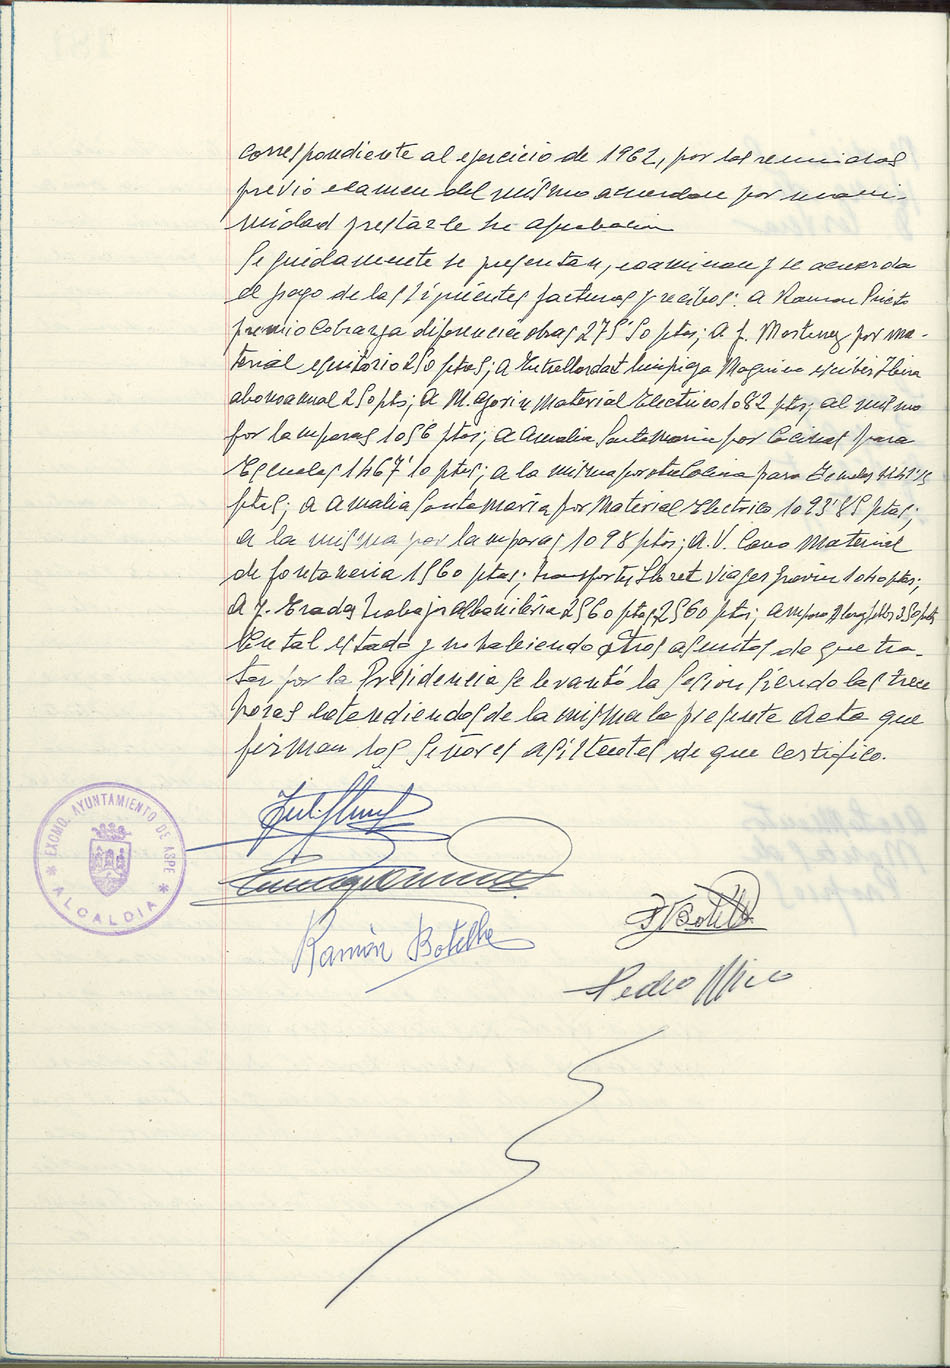 correspondiente al ejercicio de 1962, por los reunidos
previo examen del mismo acuerdan por unani-
midad prestarle su aprobacion
Seguidamente se presentan, examinan y se acuerda
el pago de las siguientes facturas y recibos: a Ramon Prieto
premio Cobranza diferencia obras 275'50 ptas; A J. Martinez por ma-
terial escritorio 250 ptas; A limpieza Maquina escribir
abono anual 250 pts; A M. Gorin Material Electrico 1082 ptas; al mismo
por lamparas 1056 ptas; a Amalia Santamaria por Cocinas para
Escuelas 1467'10 ptas; a la misma por Cocina para Escuelas
ptas; a Amalia Santamaría por Material Electrico 1093'85 ptas;
a la misma por lamparas 1098 ptas; A. V. Cano Material
de fontaneria 1560 ptas; transportes Lloret viages 1040 ptas;
A J. Erades trabajos Albanileria 2560 ptas 2560 ptas; Amparo
En tal estado y no habiendo otros asuntos de que tra-
tar por la Presidencia se levantó la Sesion siendo las trece
horas extendiendose de la misma la presente Acta que
firman los señores asistentes de que certifico.
EXCMO. AYUNTAMIENTO DE ASPE
* ALCALDIA *
Ramón Botella
F Botella
Pedro Mico